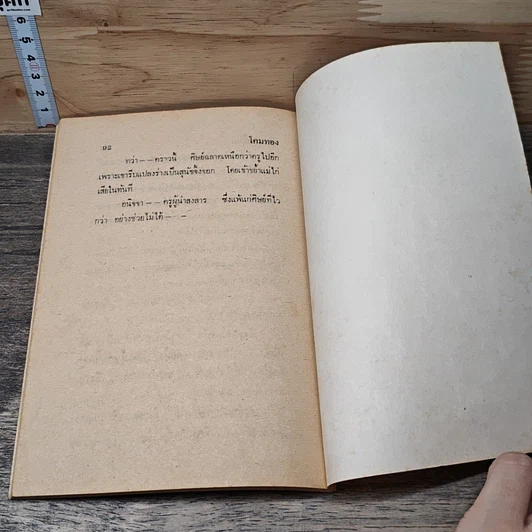 92
โคมทอง
ทว่า——คราวนี้ ศิษย์ฉลาดเหนือกว่าครูไปอีก
เพราะเขารีบแปลงร่างเป็นสุนัขจิ้งจอก โดยเข้าขย้ำแม่ไก่
เสียในทันที
อนิจจา——ครูผู้น่าสงสาร ซึ่งแพ้แก่ศิษย์ที่ไว
กว่า อย่างช่วยไม่ได้——
6
5
4
3
2
1